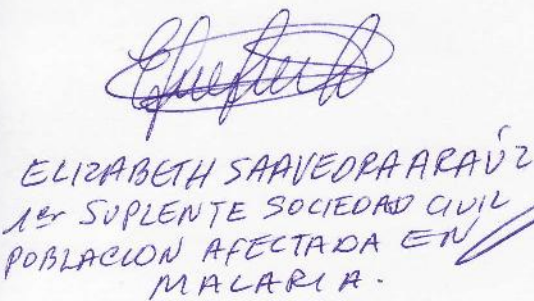 ELIZABETH SAAVEDRA ARAÚZ
1er SUPLENTE SOCIEDAD CIVIL
POBLACION AFECTADA EN
MALARIA.